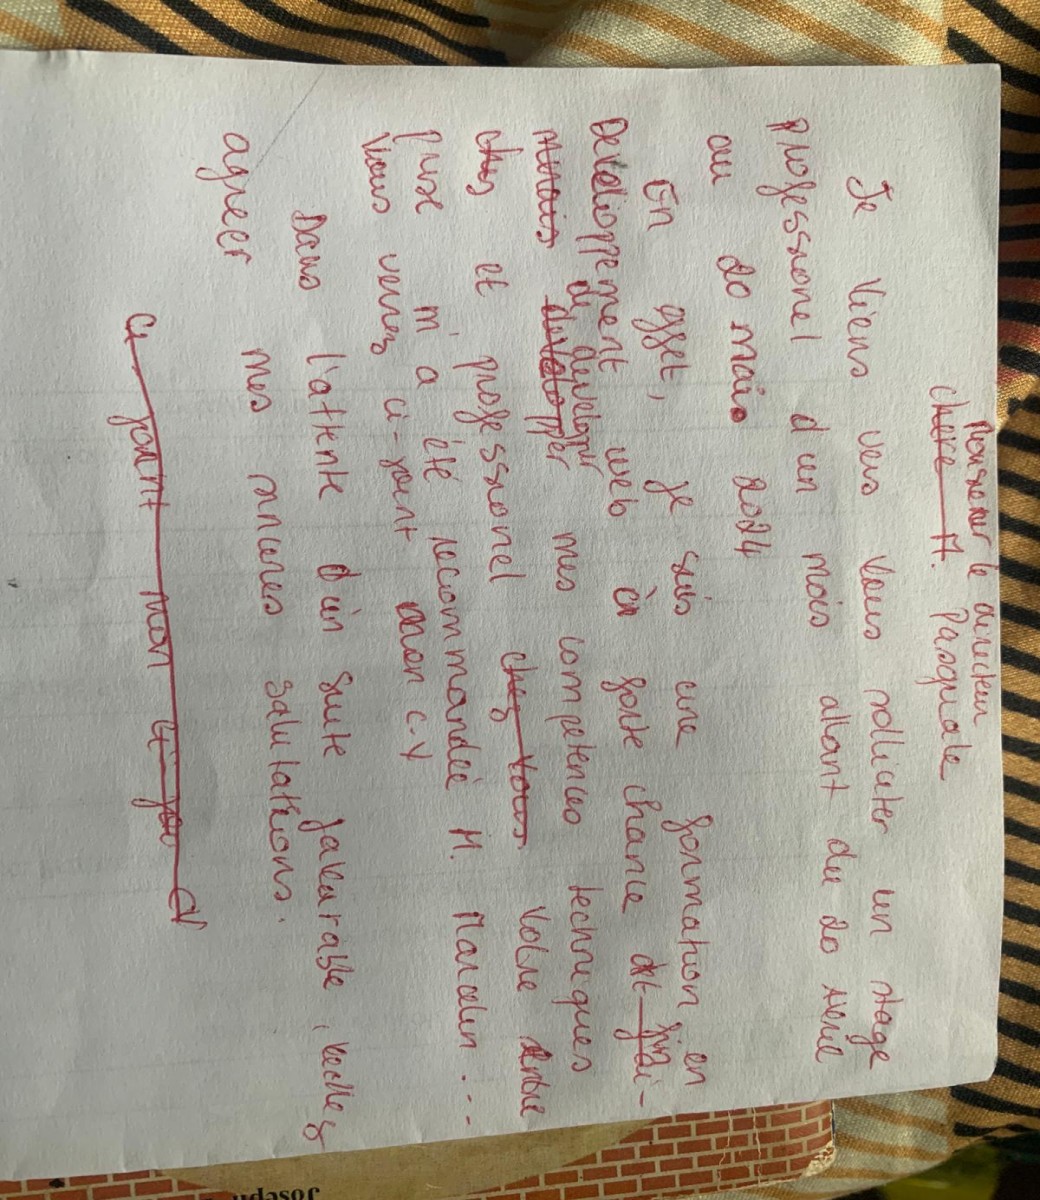 Monsieur le directeur
chere M. Pasquale
Je viens vers vous solliciter un stage
Professionel d'un mois allant du 20 Avril
au 20 mais 2024
En effet, je suis une formation en
Develioppement web à forte chance de
de developper
mes competences techniques
et professionel chez vous. Votre Entre
prise m'a été recommandée M. Marcelin ...
Vous verrez ci-joint mon C.V
Dans l'attente d'un suite favarable, veillez
agréer mes sinceres salutations.
Ci joint mon
CV
Joseph